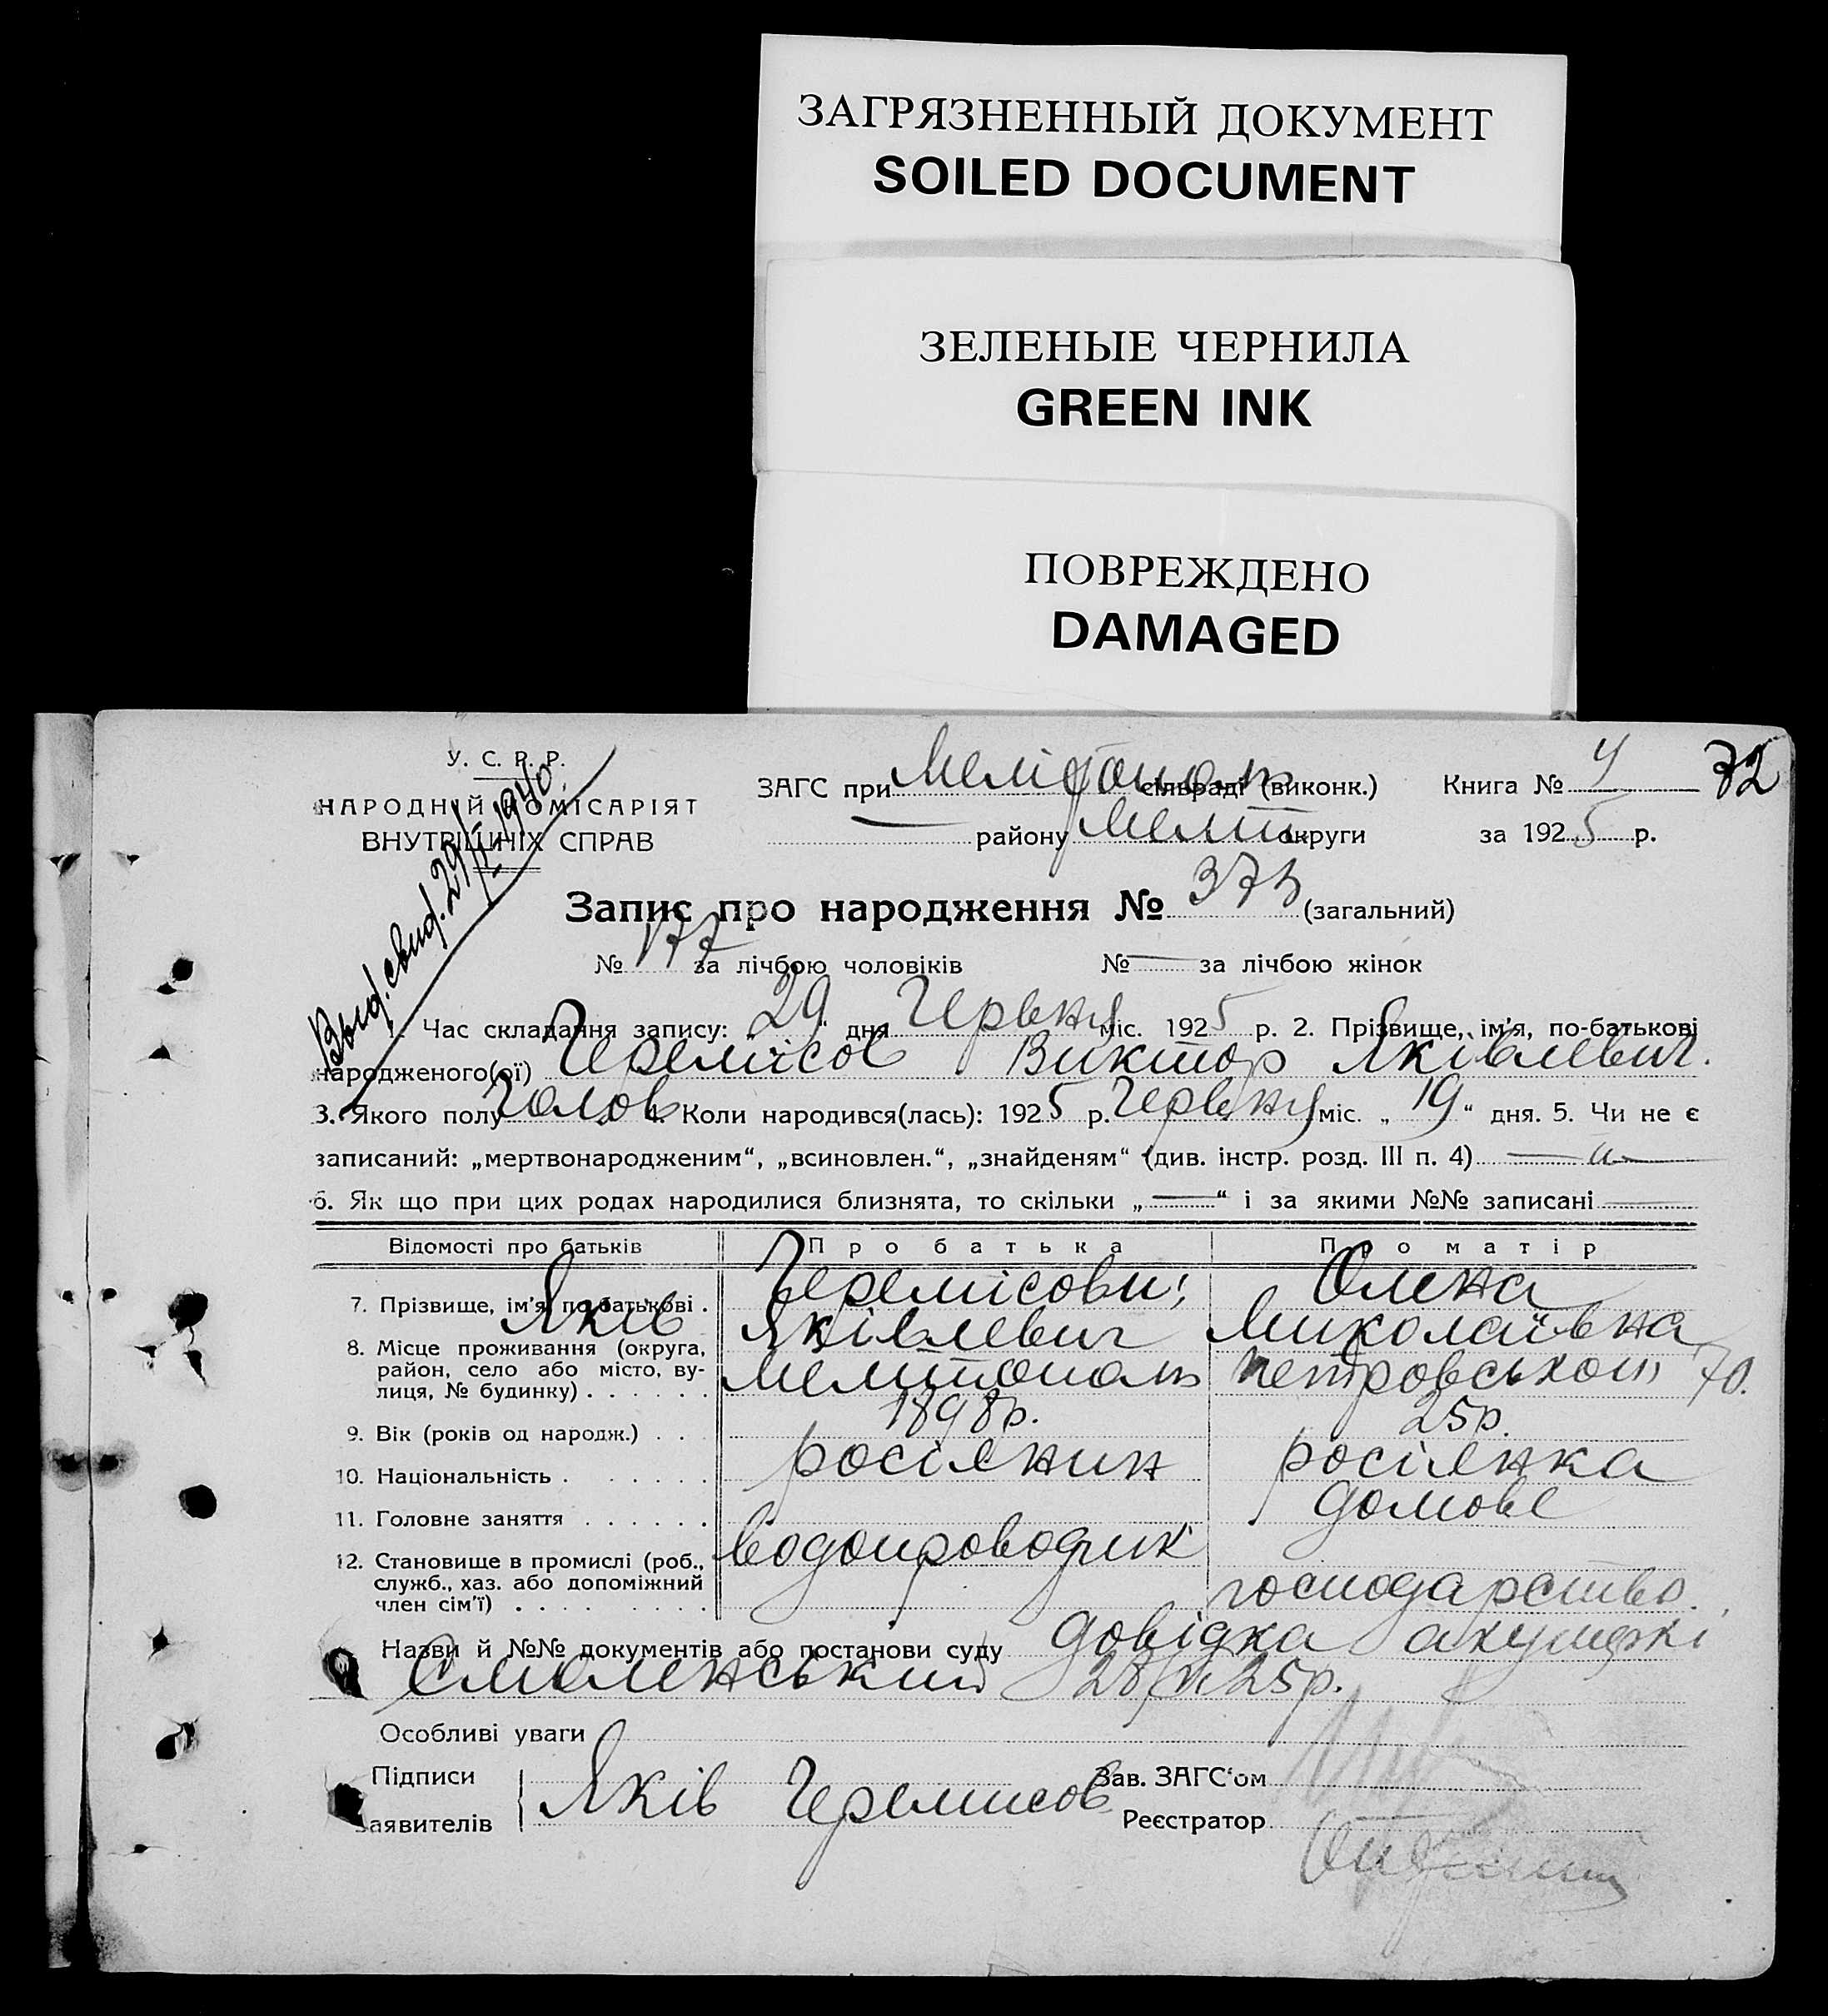 ЗАГРЯЗНЕННЫЙ ДОКУМЕНТ
SOILED DOCUMENT
ЗЕЛЕНЫЕ ЧЕРНИЛА
GREEN INK
ПОВРЕЖДЕНО
DAMAGED
У. С. Р. Р.
НАРОДНІЙ КОМІСАРІЯТ
ВНУТРІШНІХ СПРАВ
Выд. свид. 29/II-1940
ЗАГС при Мелітополь сільраді (виконк.) Книга № 4 72
— району Меліт. округи за 1925 р.
Запис про народження № 373 (загальний)
№ 177 за лічбою чоловіків № — за лічбою жінок
1. Час складання запису: 29 " дня Червня міс. 1925 р. 2. Прізвище, ім'я, по-батькові
народженого(ої) Черемісов Виктор Яківлевич.
3. Якого полу Чолов 4. Коли народився(лась): 1925 р. Червня міс. „ 19 “ дня. 5. Чи не є
записаний: „мертвонародженим“, „всиновлен.“, „знайденям“ (див. інстр. розд. III п. 4) — " —
6. Як що при цих родах народилися близнята, то скільки „ — “ і за якими №№ записані —
Відомості про батьків Про батька Про матір
7. Прізвище, ім'я, по-батькові . Черемісови: Олена
Яків Яківлевич Миколаївна
8. Місце проживання (округа,
район, село або місто, ву-
лиця, № будинку) . . . . . . Мелітополь Петровської 70.
9. Вік (років од народж.) . . 1898р. 25р.
10. Національність . . . . . . росіянин росіянка
11. Головне заняття . . . . . . домове
12. Становище в промислі (роб.,
служб., хаз. або допоміжний
член сім'ї) . . . . . . . . водопроводчик господарство.
Назви й №№ документів або постанови суду довідка акушерки
Смоленський 28/VI 25р.
Особливі уваги
Підписи
заявителів Яків Черемисов
Зав. ЗАГС'ом
Реєстратор